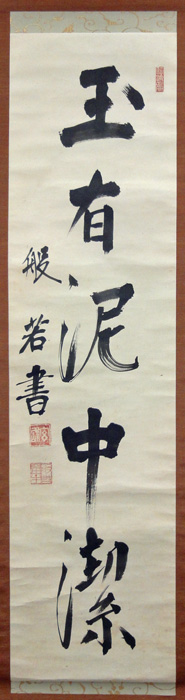 玉有泥中潔
般若書